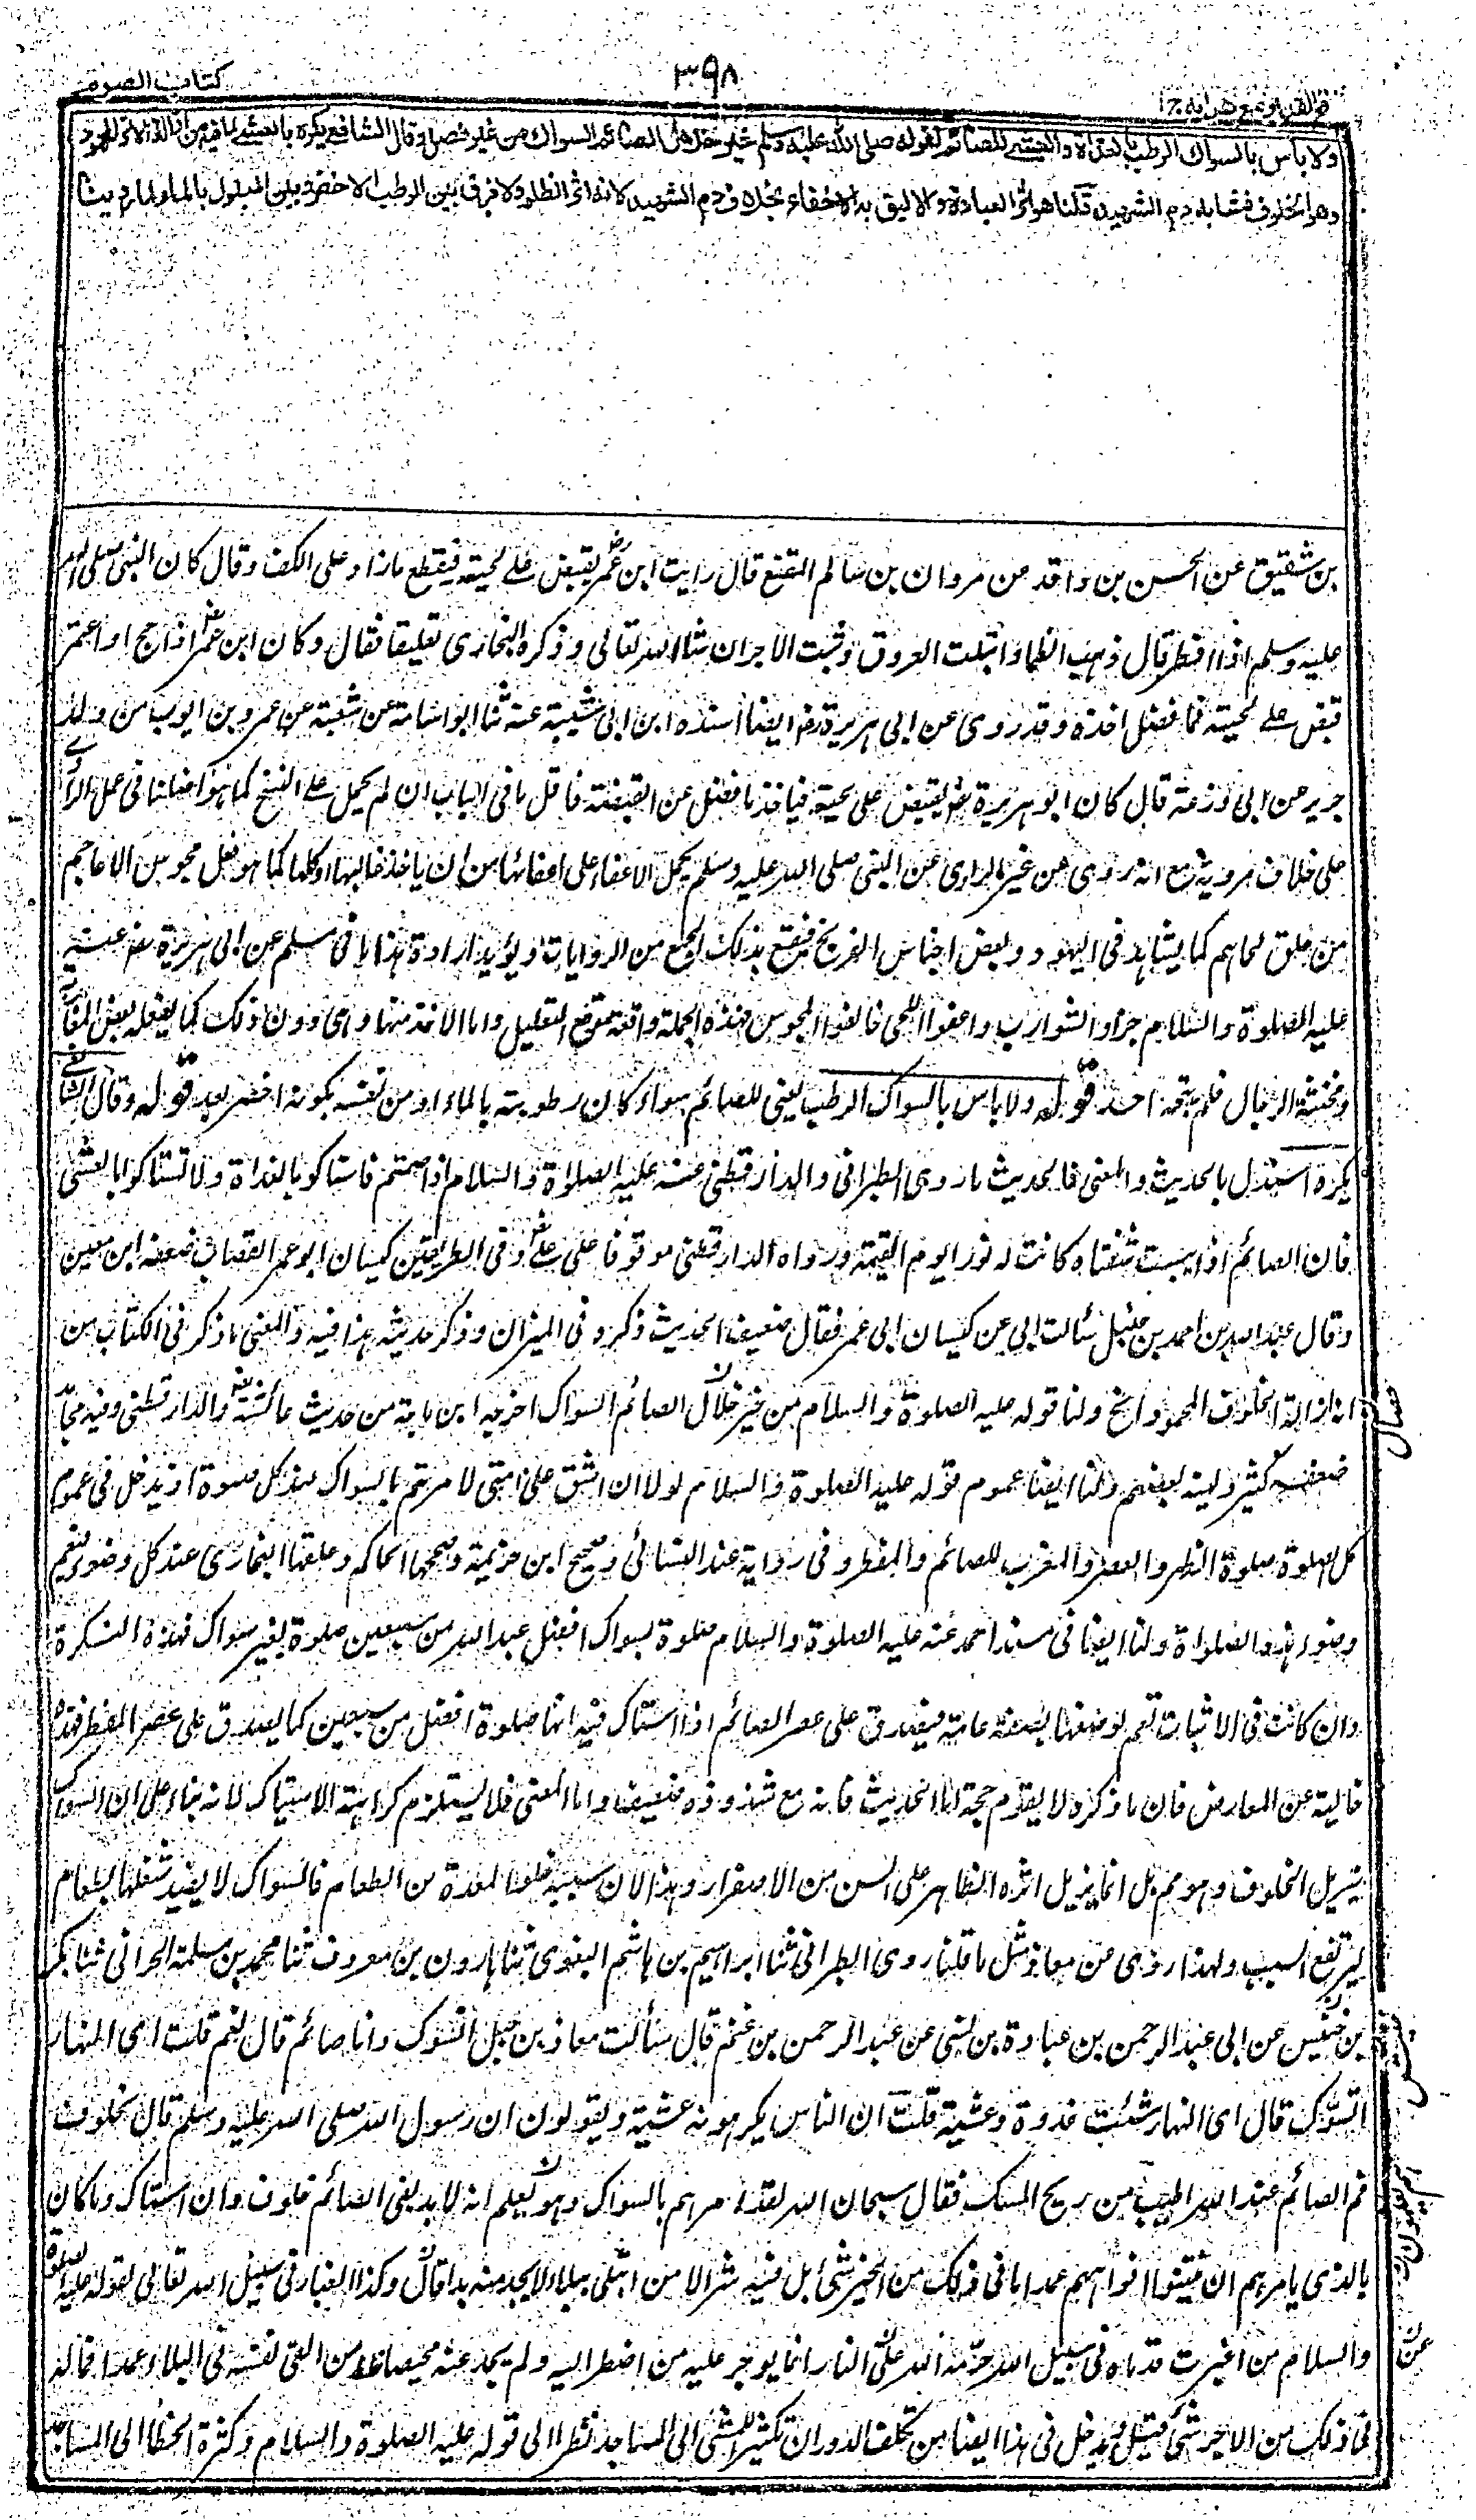 فتح القدير مع هداية ج
٣٩٨
كتاب الصوم
ولا باس بالسواك الرطب بالغداة والعشى للصائم لقوله صلى الله عليه وسلم خير خلال الصائم السواك من غير فصل وقال الشافعى يكره بالعشى لما فيه من ازالة الاثر المحمود
وهو الخلوف فشابه دم الشهيد قلنا هو اثر العبادة والاليق به الاخفاء بخلاف دم الشهيد لانه اثر الظلم ولا فرق بين الرطب الاخضر وبين المبلول بالماء لما روينا
بن شقيق عن الحسن بن واقد عن مروان بن سالم المقنع قال رايت ابن عمر رض يقبض على لحيته فيقطع ما زاد على الكف وقال كان النبى صلى الله
عليه وسلم اذا افطر قال ذهب الظما وابتلت العروق وثبت الاجر ان شاء الله تعالى وذكره البخارى تعليقا فقال وكان ابن عمر رض اذا حج او اعتمر
قبض على لحيته فما فضل اخذه وقد روى عن ابى هريرة رض ايضا اسنده ابن ابى شيبة عنه ثنا ابو اسامة عن شعبة عن عمرو بن ايوب من ولد
جرير عن ابى زرعة قال كان ابو هريرة رض يقبض على لحيته فياخذ ما فضل عن القبضة فاقل ما فى الباب ان لم يحمل على النسخ كما هو اصلنا فى عمل الراوى
على خلاف مرويه مع انه روى عن غير الراوى عن النبى صلى الله عليه وسلم يحمل الاعفاء على اعفائها من ان ياخذ غالبها او كلها كما هو فعل مجوس الاعاجم
من حلق لحاهم كما يشاهد فى اليهود وبعض اجناس الفرنج فيقع بذلك الجمع من الروايات ويؤيد ارادة هذا ما فى مسلم عن ابى هريرة رض عنه
عليه الصلوة والسلام جزوا الشوارب واعفوا اللحى خالفوا المجوس فهذه الجملة واقعة موقع التعليل واما الاخذ منها وهى دون ذلك كما يفعله بعض المغاربة
ومخنثة الرجال فلم يبحه احد قوله ولا باس بالسواك الرطب يعنى للصائم سواء كان رطوبته بالماء او من نفسه بكونه اخضر بعد قوله وقال الشافعى
يكره استدل بالحديث والمعنى فالحديث ما روى الطبرانى والدارقطنى عنه عليه الصلوة والسلام اذا صمتم فاستاكوا بالغداة ولا تستاكوا بالعشى
فان الصائم اذا يبست شفتاه كانت له نورا يوم القيمة ورواه الدارقطنى موقوفا على على رض وفى الطريقين كيسان ابو عمر القصاب ضعفه ابن معين
وقال عبد الله بن احمد بن حنبل سئالت ابى عن كيسان ابى عمر فقال ضعيف الحديث ذكره فى الميزان وذكر حديثه هذا فيه والمعنى ما ذكر فى الكتاب من
انه ازالة الخلوف المحمود الخ ولنا قوله عليه الصلوة والسلام من خير خلال الصائم السواك اخرجه ابن ماجة من حديث عائشة رض والدارقطنى وفيه مجالد
ضعفه كثير ولينه بعضهم ولنا ايضا عموم قوله عليه الصلوة والسلام لولا ان اشق على امتى لامرتهم بالسواك عند كل صلوة اذ يدخل فى عموم
كل صلوة صلوة الظهر والعصر والمغرب للصائم والمفطر وفى رواية عند النسائى وصحيح ابن خزيمة وصححها الحاكم وعلقها البخارى عند كل وضوء فيعم
وضوء هذه الصلواة ولنا ايضا فى مسند احمد عنه عليه الصلوة والسلام صلوة بسواك افضل عند الله من سبعين صلوة بغير سواك فهذه النكرة
وان كانت فى الاثبات تعم لوصفها بصفة عامة فيصدق على عصر الصائم اذا استاك فيه انها صلوة افضل من سبعين كما يصدق على عصر المفطر فهذه
خالية عن المعارض فان ما ذكره لا يقوم حجة اما الحديث فانه مع شذوذه ضعيف واما المعنى فلا يستلزم كراهة الاستياك لانه بناء على ان السواك
يزيل الخلوف وهو مم بل انما يزيل اثره الظاهر على السن من الاصفرار وهذا لان سببه خلو المعدة من الطعام فالسواك لا يفيد شغلها بطعام
ليرتفع السبب ولهذا روى عن معاذ مثل ما قلنا روى الطبرانى ثنا ابراهيم بن هاشم البغوى ثنا هارون بن معروف ثنا محمد بن سلمة الحرانى ثنا بكر
بن خنيس عن ابى عبد الرحمن بن عبادة بن نسى عن عبد الرحمن بن غنم قال سئالت معاذ بن جبل اتسوك وانا صائم قال نعم قلت اى النهار
اتسوك قال اى النهار شئت غدوة وعشية قلت ان الناس يكرهونه عشية ويقولون ان رسول الله صلى الله عليه وسلم قال لخلوف
فم الصائم عند الله اطيب من ريح المسك فقال سبحان الله لقد امرهم بالسواك وهو يعلم انه لابد بفى الصائم خلوف وان استاك وما كان
بالذى يامرهم ان ينتنوا افواههم عمدا ما فى ذلك من الخير شئ بل فيه شر الا من ابتلى ببلاء لا يجد منه بدا قال وكذا الغبار فى سبيل الله تعالى لقوله عليه الصلوة
والسلام من اغبرت قدماه فى سبيل الله حرمه الله على النار انما يوجر عليه من اضطر اليه ولم يجد عنه محيصا فاما من القى نفسه فى البلاء عمدا فماله
فى ذلك من الاجر شئ قيل ويدخل فى هذا ايضا من تكلف الدوران تكثيرا للمشى الى المساجد نظرا الى قوله عليه الصلوة والسلام وكثرة الخطا الى المساجد